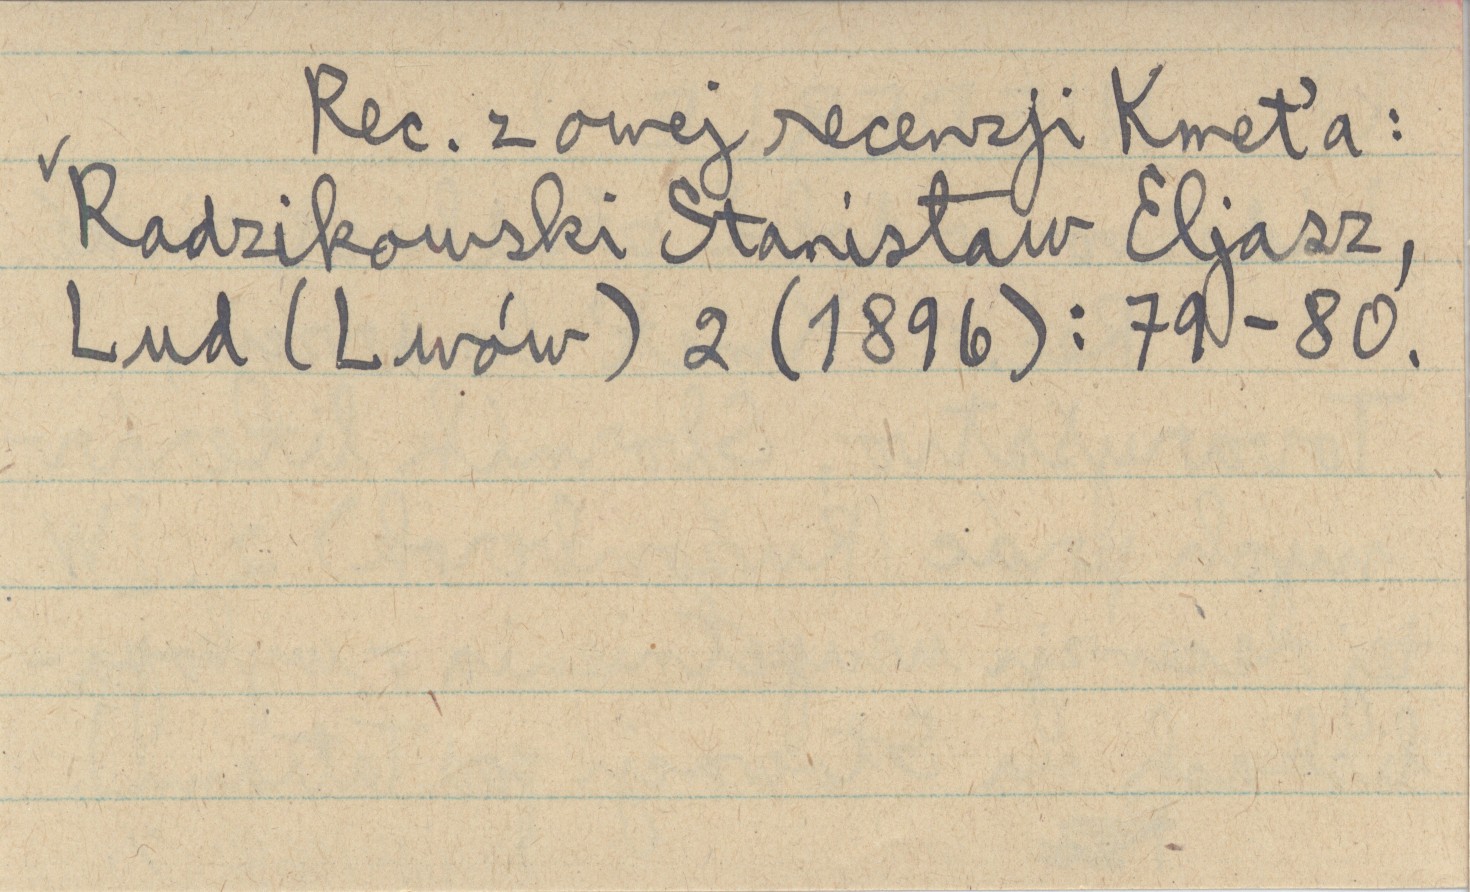 Rec. z owej recenzji Kmeťa:
✓ Radzikowski Stanisław Eljasz,
Lud (Lwów) 2 (1896): 79-80.